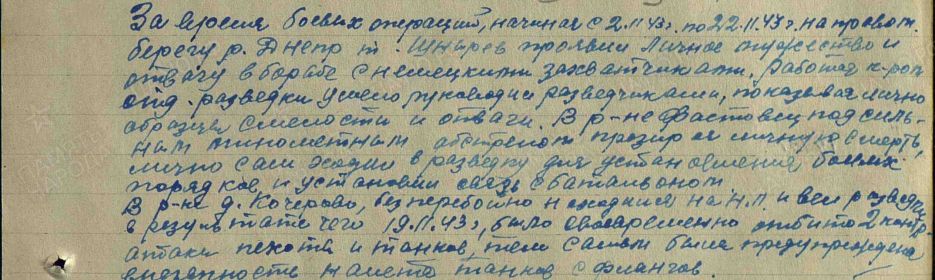 За время боевых операций, начиная с 2.11.43г. по 22.11.43г. на правом
берегу р. Днепр т. Шнырев проявил личное мужество и
отвагу в борьбе с немецкими захватчиками. Работая к-ром
отд. разведки умело руководил разведчиками, показывая лично
образцы смелости и отваги. В р-не Фастовец под силь-
ным минометным обстрелом презирая личную смерть,
лично сам ходил в разведку для установления боевых
порядков и установил связь с батальоном.
В р-не д. Кочерово, бесперебойно находился на Н.П. и вел разведку
в результате чего 19.11.43г, было своевременно отбито 2 контр-
атаки пехоты и танков, тем самым была предупреждена
внезапность налета танков с флангов.